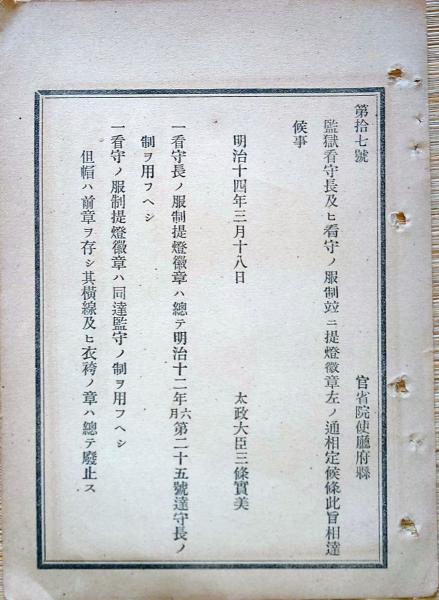 第拾七號
官省院使廳府縣
監獄看守長及ヒ看守ノ服制竝ニ提燈徽章左ノ通相定候條此旨相達
候事
明治十四年三月十八日
太政大臣三條實美
一看守長ノ服制提燈徽章ハ總テ明治十二年六月第二十五號達守長ノ
制ヲ用フヘシ
一看守ノ服制提燈徽章ハ同達監守ノ制ヲ用フヘシ
但帽ハ前章ヲ存シ其横線及ヒ衣袴ノ章ハ總テ廢止ス